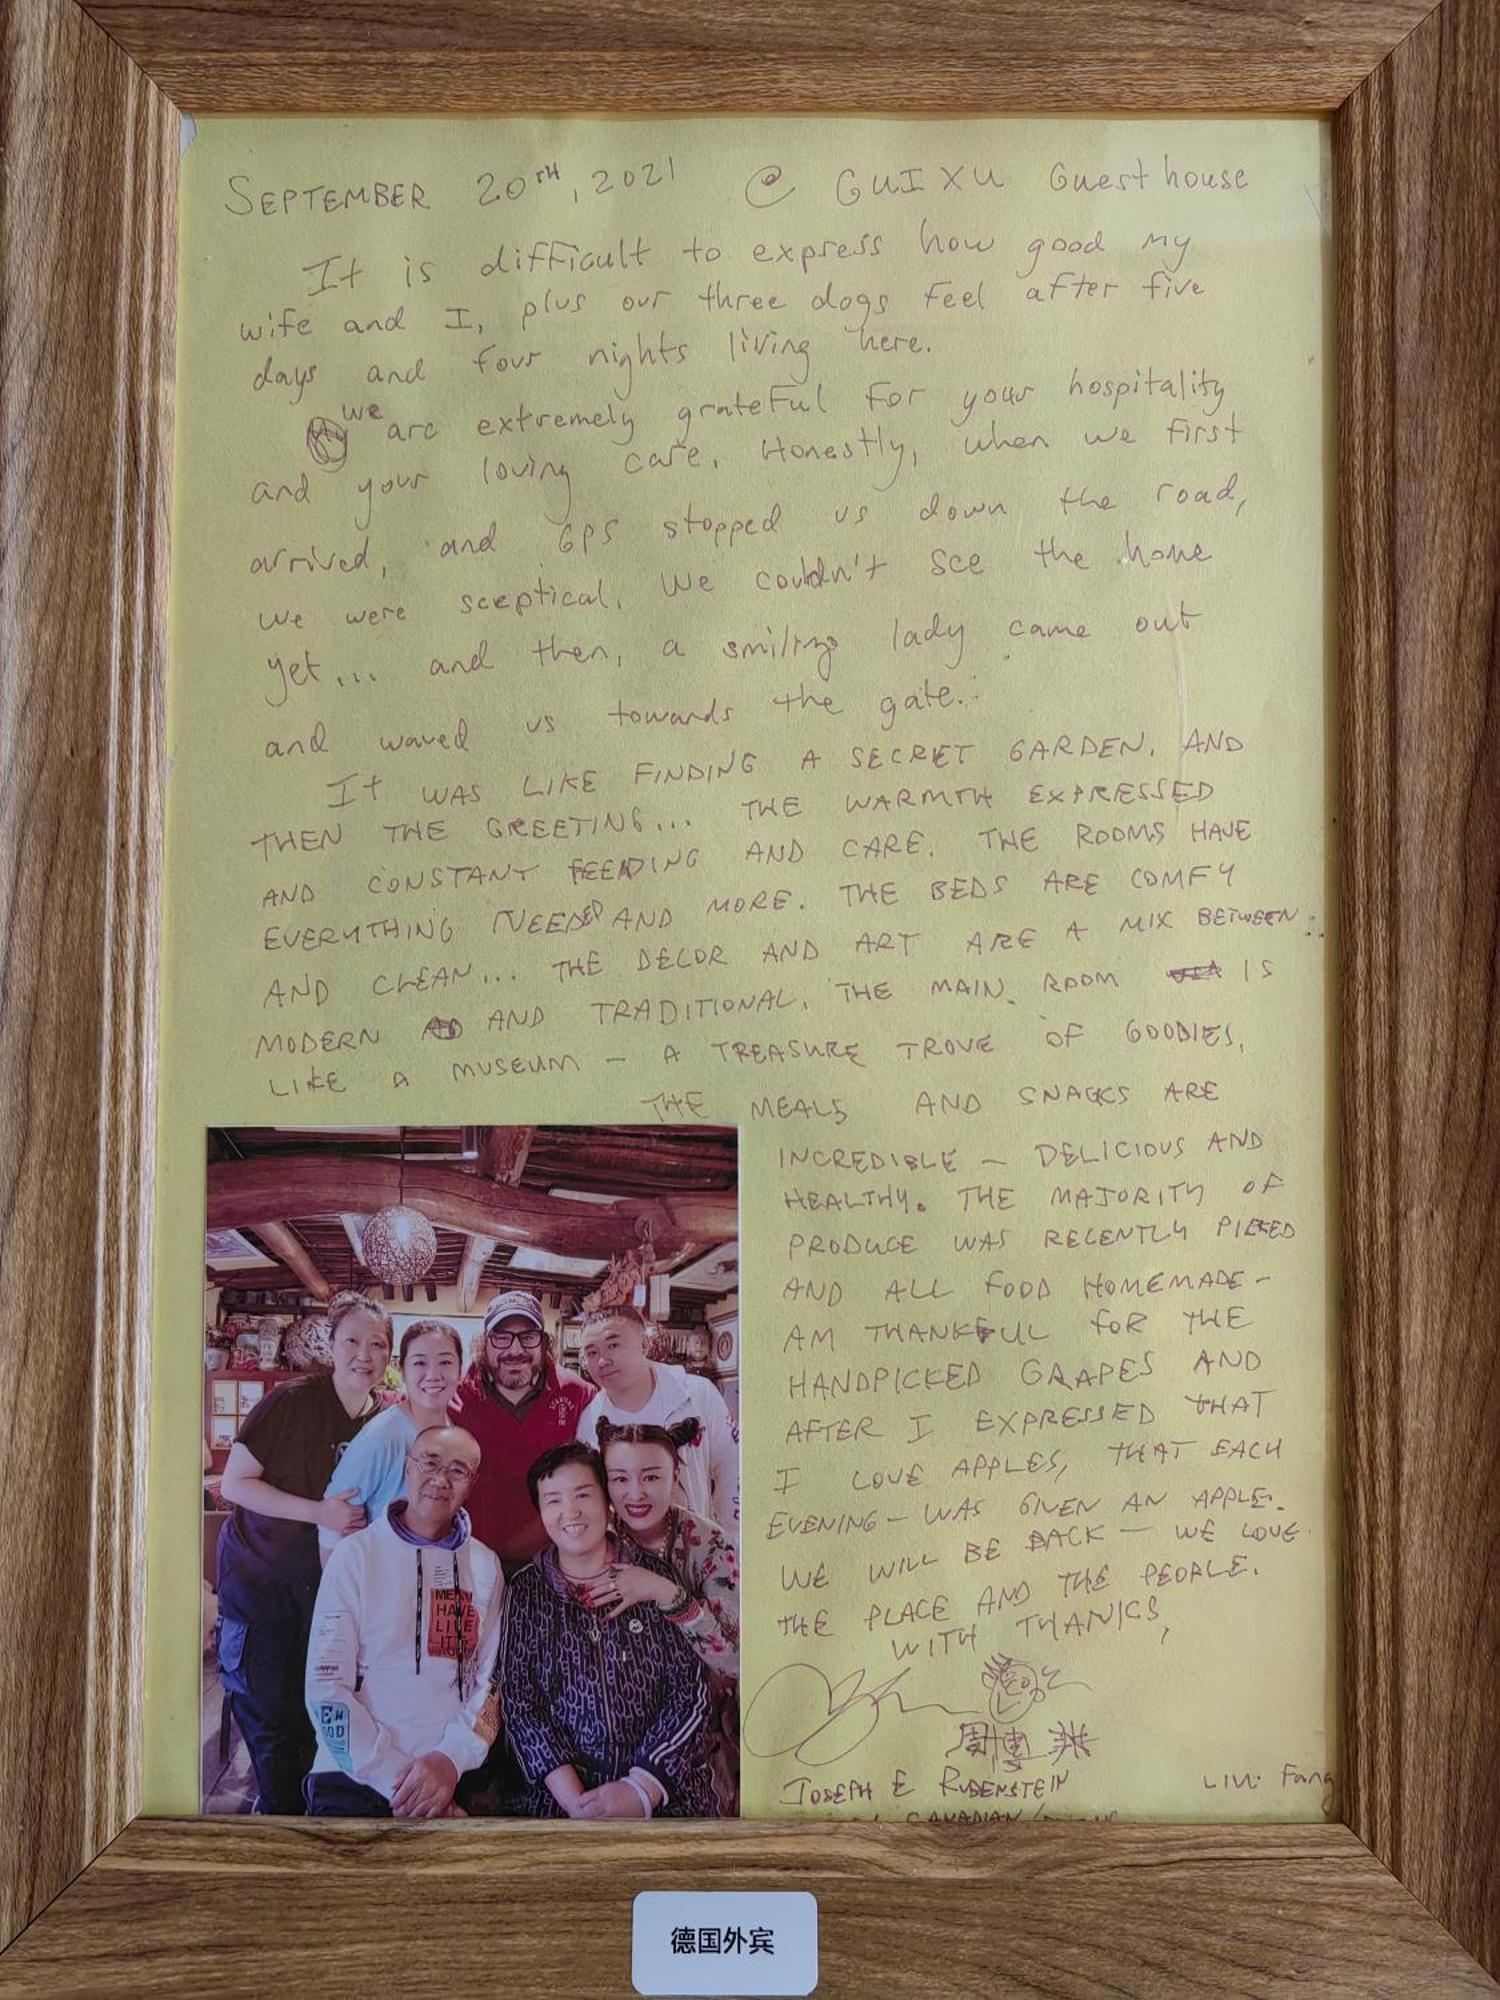 SEPTEMBER 20TH, 2021 @ GUIXU Guesthouse
It is difficult to express how good my
wife and I, plus our three dogs feel after five
days and four nights living here.
we are extremely grateful for your hospitality
and your loving care. Honestly, when we first
arrived, and GPS stopped us down the road,
we were sceptical. We couldn't see the home
yet... and then, a smiling lady came out
and waved us towards the gate..
It WAS LIKE FINDING A SECRET GARDEN. AND
THEN THE GREETING... THE WARMTH EXPRESSED
AND CONSTANT FEEDING AND CARE. THE ROOMS HAVE
EVERYTHING NEEDED AND MORE. THE BEDS ARE COMFY
AND CLEAN... THE DECOR AND ART ARE A MIX BETWEEN
MODERN AND TRADITIONAL. THE MAIN ROOM IS
LIKE A MUSEUM - A TREASURE TROVE OF GOODIES.
THE MEALS AND SNACKS ARE
INCREDIBLE - DELICIOUS AND
HEALTHY. THE MAJORITY OF
PRODUCE WAS RECENTLY PICKED
AND ALL FOOD HOMEMADE -
AM THANKFUL FOR THE
HANDPICKED GRAPES AND
AFTER I EXPRESSED THAT
I LOVE APPLES, THAT EACH
EVENING - WAS GIVEN AN APPLE.
WE WILL BE BACK - WE LOVE
THE PLACE AND THE PEOPLE.
WITH THANKS,
周博
JOSEPH E RUBENSTEIN
LIU Fang
CANADIAN
MEAN
HAVE
LIKE
IT'S
德国外宾